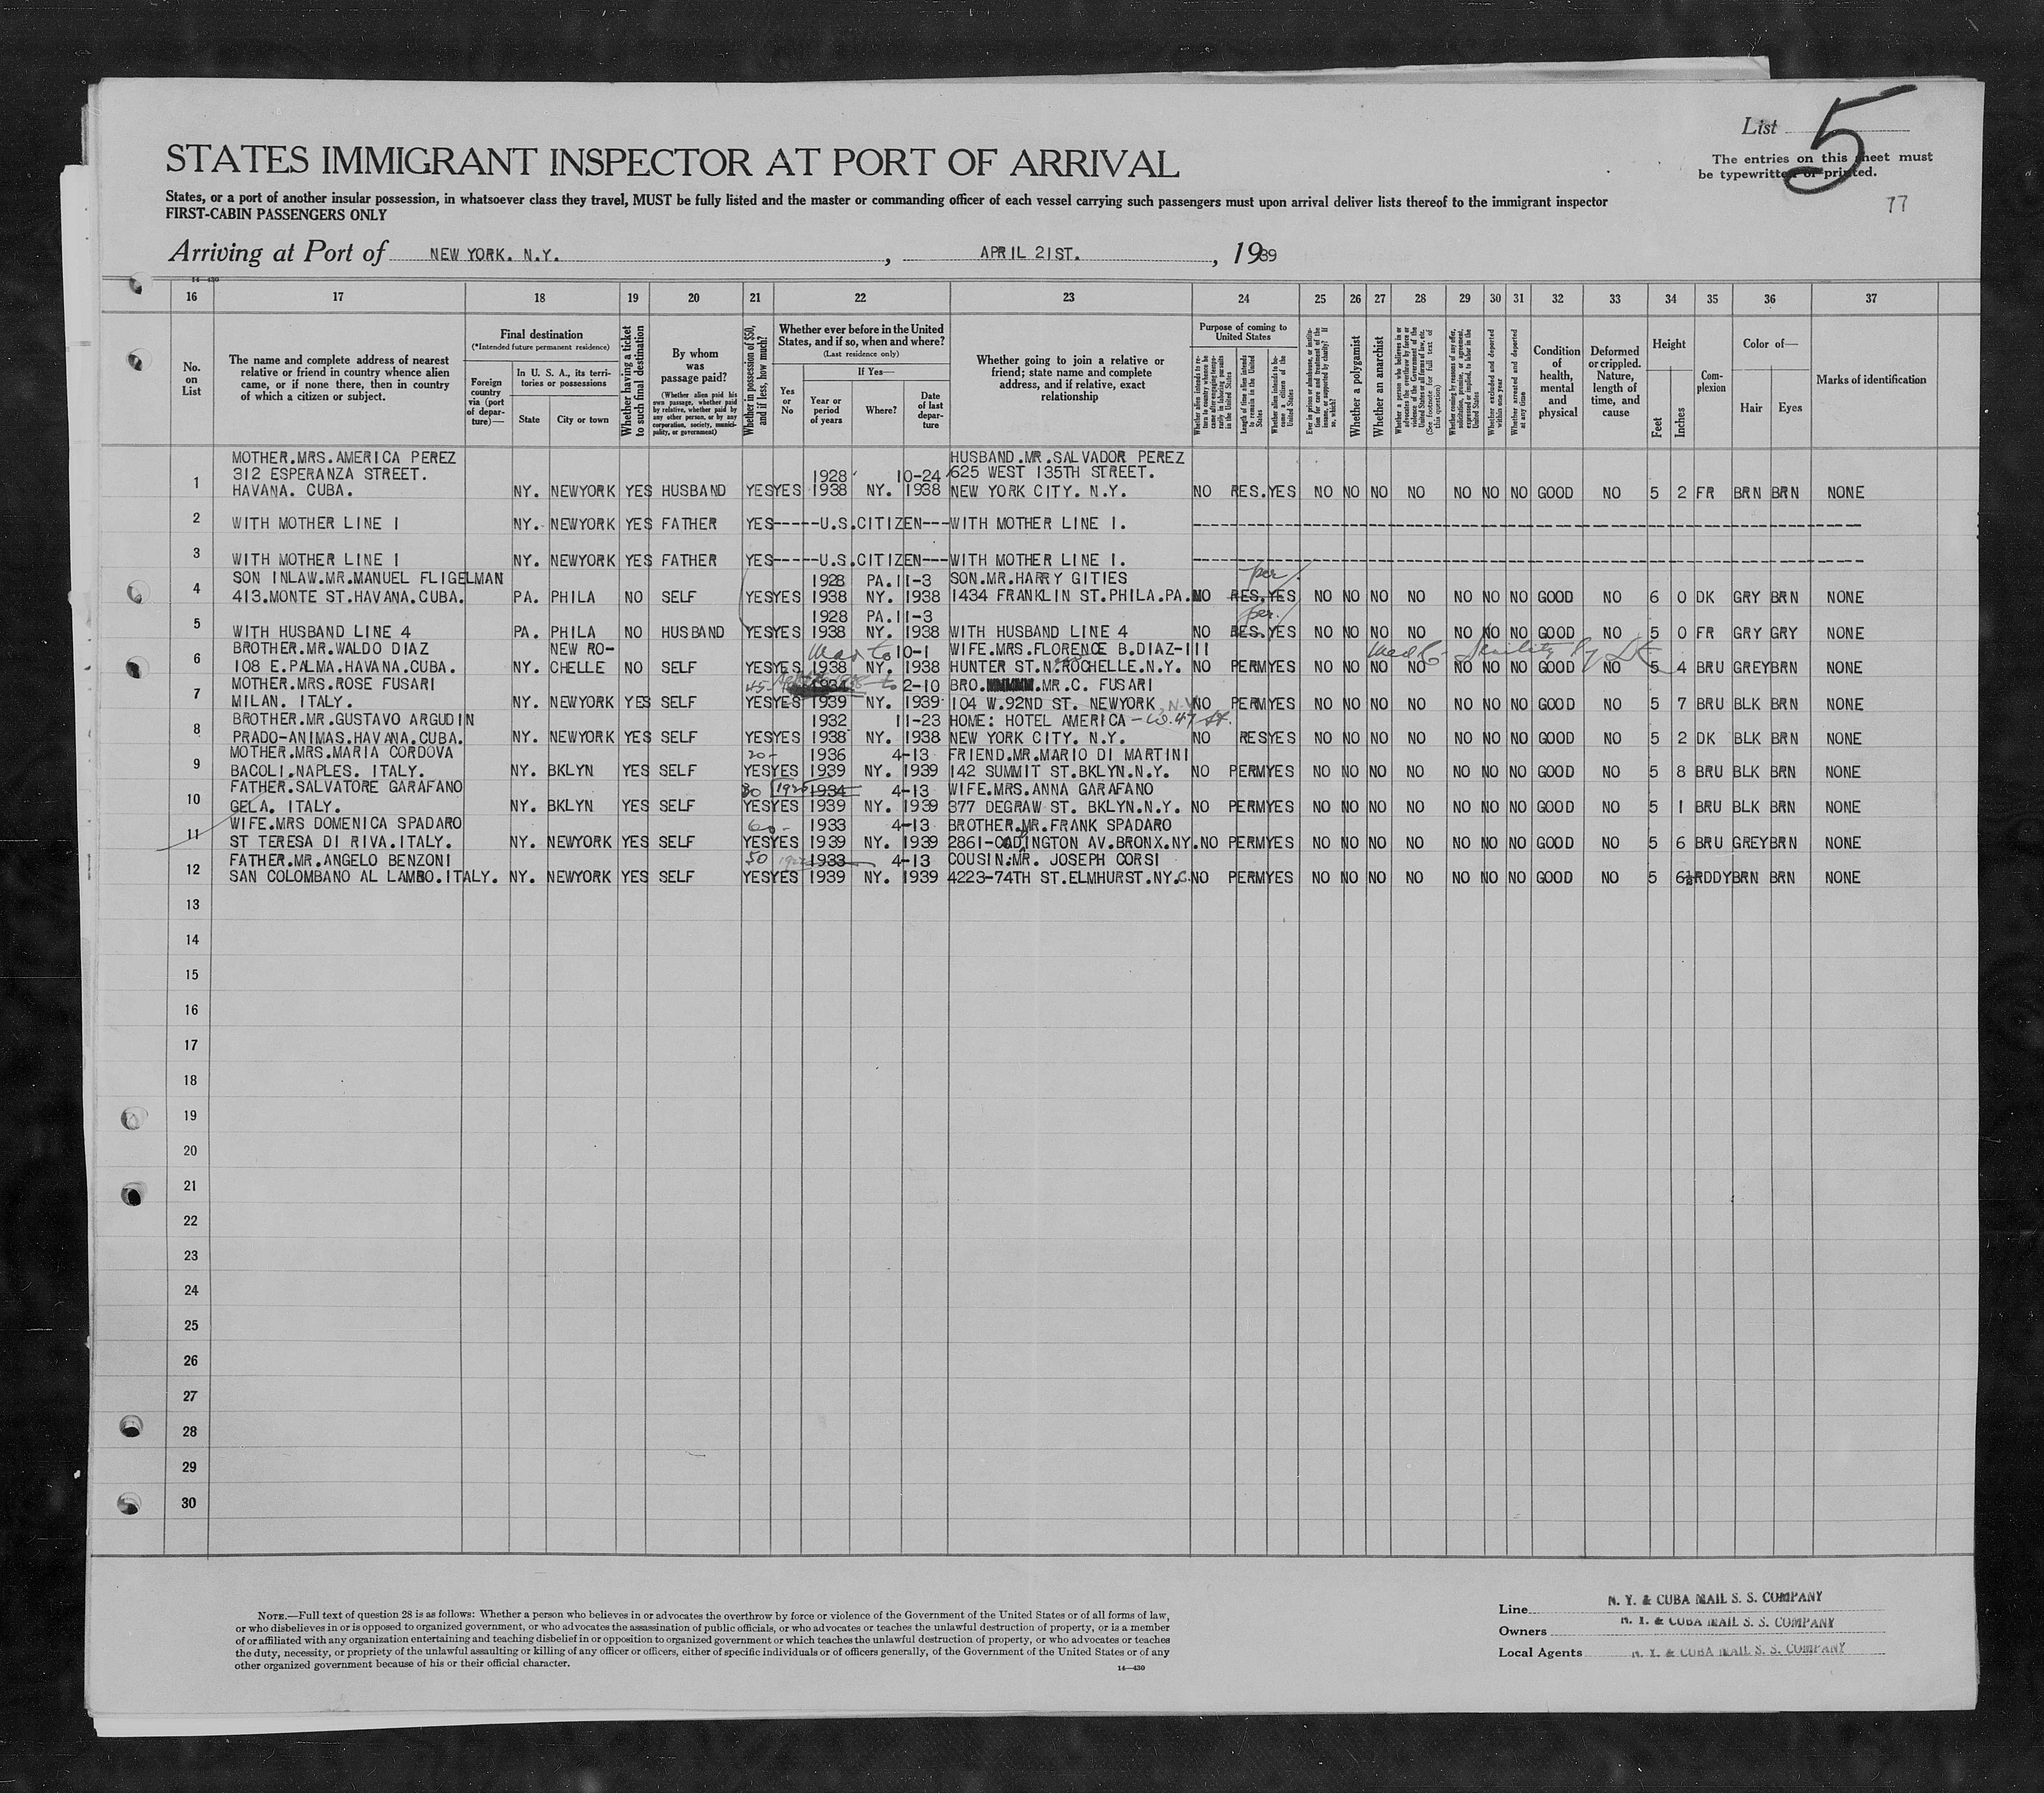 List 5
The entries on this sheet must
be typewritten or printed.
77
STATES IMMIGRANT INSPECTOR AT PORT OF ARRIVAL
States, or a port of another insular possession, in whatsoever class they travel, MUST be fully listed and the master or commanding officer of each vessel carrying such passengers must upon arrival deliver lists thereof to the immigrant inspector
FIRST-CABIN PASSENGERS ONLY
Arriving at Port of NEW YORK. N.Y. , APRIL 21ST. , 1939
14—430
16 17 18 19 20 21 22 23 24 25 26 27 28 29 30 31 32 33 34 35 36 37
No. on List
The name and complete address of nearest relative or friend in country whence alien came, or if none there, then in country of which a citizen or subject.
Final destination
(*Intended future permanent residence)
Foreign country via (port of departure)—
In U. S. A., its territories or possessions
State City or town
Whether having a ticket to such final destination
By whom was passage paid?
(Whether alien paid his own passage, whether paid by relative, whether paid by any other person, or by any corporation, society, municipality, or government)
Whether in possession of $50, and if less, how much?
Whether ever before in the United States, and if so, when and where?
(Last residence only)
Yes or No
If Yes—
Year or period of years
Where?
Date of last departure
Whether going to join a relative or friend; state name and complete address, and if relative, exact relationship
Purpose of coming to United States
Whether alien intends to return to country whence he came after engaging temporarily in laboring pursuits in the United States
Length of time alien intends to remain in the United States
Whether alien intends to become a citizen of the United States
Ever in prison or almshouse, or institution for care and treatment of the insane, or supported by charity? If so, which?
Whether a polygamist
Whether an anarchist
Whether a person who believes in or advocates the overthrow by force or violence of the Government of the United States or all forms of law, etc. (See footnote for full text of this question)
Whether coming by reasons of any offer, solicitation, promise, or agreement, expressed or implied, to labor in the United States
Whether excluded and deported within one year
Whether arrested and deported at any time
Condition of health, mental and physical
Deformed or crippled. Nature, length of time, and cause
Height
Feet Inches
Complexion
Color of—
Hair Eyes
Marks of identification
MOTHER.MRS.AMERICA PEREZ HUSBAND.MR.SALVADOR PEREZ
312 ESPERANZA STREET. 1928 10-24 625 WEST 135TH STREET.
1 HAVANA. CUBA. NY. NEWYORK YES HUSBAND YES YES 1938 NY. 1938 NEW YORK CITY. N.Y. NO RES. YES NO NO NO NO NO NO NO GOOD NO 5 2 FR BRN BRN NONE
2 WITH MOTHER LINE 1 NY. NEWYORK YES FATHER YES-----U.S.CITIZEN---WITH MOTHER LINE 1.
3 WITH MOTHER LINE 1 NY. NEWYORK YES FATHER YES-----U.S.CITIZEN---WITH MOTHER LINE 1.
SON INLAW.MR.MANUEL FLIGELMAN 1928 PA. 11-3 SON.MR.HARRY GITIES per
4 413.MONTE ST.HAVANA.CUBA. PA. PHILA NO SELF YES YES 1938 NY. 1938 1434 FRANKLIN ST.PHILA.PA. NO RES. YES NO NO NO NO NO NO NO GOOD NO 6 0 DK GRY BRN NONE
1928 PA. 11-3 per.
5 WITH HUSBAND LINE 4 PA. PHILA NO HUSBAND YES YES 1938 NY. 1938 WITH HUSBAND LINE 4 NO RES. YES NO NO NO NO NO NO NO GOOD NO 5 0 FR GRY GRY NONE
BROTHER.MR.WALDO DIAZ NEW RO- 10-1 WIFE.MRS.FLORENCE B.DIAZ-111 Senility
6 108 E.PALMA.HAVANA.CUBA. NY. CHELLE NO SELF YES YES 1938 NY. 1938 HUNTER ST.N.ROCHELLE.N.Y. NO PERM YES NO NO NO NO NO NO NO GOOD NO 5 4 BRU GREY BRN NONE
MOTHER.MRS.ROSE FUSARI 45- 1934 to 2-10 BRO. .MR.C. FUSARI
7 MILAN. ITALY. NY. NEWYORK YES SELF YES YES 1939 NY. 1939 104 W.92ND ST. NEWYORK N.Y. NO PERM YES NO NO NO NO NO NO NO GOOD NO 5 7 BRU BLK BRN NONE
BROTHER.MR.GUSTAVO ARGUDIN 1932 11-23 HOME: HOTEL AMERICA - W. 47 St.
8 PRADO-ANIMAS.HAVANA.CUBA. NY. NEWYORK YES SELF YES YES 1938 NY. 1938 NEW YORK CITY. N.Y. NO RES YES NO NO NO NO NO NO NO GOOD NO 5 2 DK BLK BRN NONE
MOTHER.MRS.MARIA CORDOVA 20- 1936 4-13 FRIEND.MR.MARIO DI MARTINI
9 BACOLI.NAPLES. ITALY. NY. BKLYN YES SELF YES YES 1939 NY. 1939 142 SUMMIT ST.BKLYN.N.Y. NO PERM YES NO NO NO NO NO NO NO GOOD NO 5 8 BRU BLK BRN NONE
FATHER.SALVATORE GARAFANO 30 1934 4-13 WIFE.MRS.ANNA GARAFANO
10 GELA. ITALY. NY. BKLYN YES SELF YES YES 1939 NY. 1939 377 DEGRAW ST. BKLYN.N.Y. NO PERM YES NO NO NO NO NO NO NO GOOD NO 5 1 BRU BLK BRN NONE
WIFE.MRS DOMENICA SPADARO 60- 1933 4-13 BROTHER.MR.FRANK SPADARO
11 ST TERESA DI RIVA.ITALY. NY. NEWYORK YES SELF YES YES 1939 NY. 1939 2861-CODINGTON AV.BRONX.NY. NO PERM YES NO NO NO NO NO NO NO GOOD NO 5 6 BRU GREY BRN NONE
FATHER.MR.ANGELO BENZONI 50 1933 4-13 COUSIN.MR. JOSEPH CORSI
12 SAN COLOMBANO AL LAMBO.ITALY. NY. NEWYORK YES SELF YES YES 1939 NY. 1939 4223-74TH ST.ELMHURST.NY.C. NO PERM YES NO NO NO NO NO NO NO GOOD NO 5 6½ RDDY BRN BRN NONE
13
14
15
16
17
18
19
20
21
22
23
24
25
26
27
28
29
30
NOTE.—Full text of question 28 is as follows: Whether a person who believes in or advocates the overthrow by force or violence of the Government of the United States or of all forms of law,
or who disbelieves in or is opposed to organized government, or who advocates the assassination of public officials, or who advocates or teaches the unlawful destruction of property, or is a member
of or affiliated with any organization entertaining and teaching disbelief in or opposition to organized government or which teaches the unlawful destruction of property, or who advocates or teaches
the duty, necessity, or propriety of the unlawful assaulting or killing of any officer or officers, either of specific individuals or of officers generally, of the Government of the United States or of any
other organized government because of his or their official character.
14—430
Line N. Y. & CUBA MAIL S. S. COMPANY
Owners N. Y. & CUBA MAIL S. S. COMPANY
Local Agents N. Y. & CUBA MAIL S. S. COMPANY